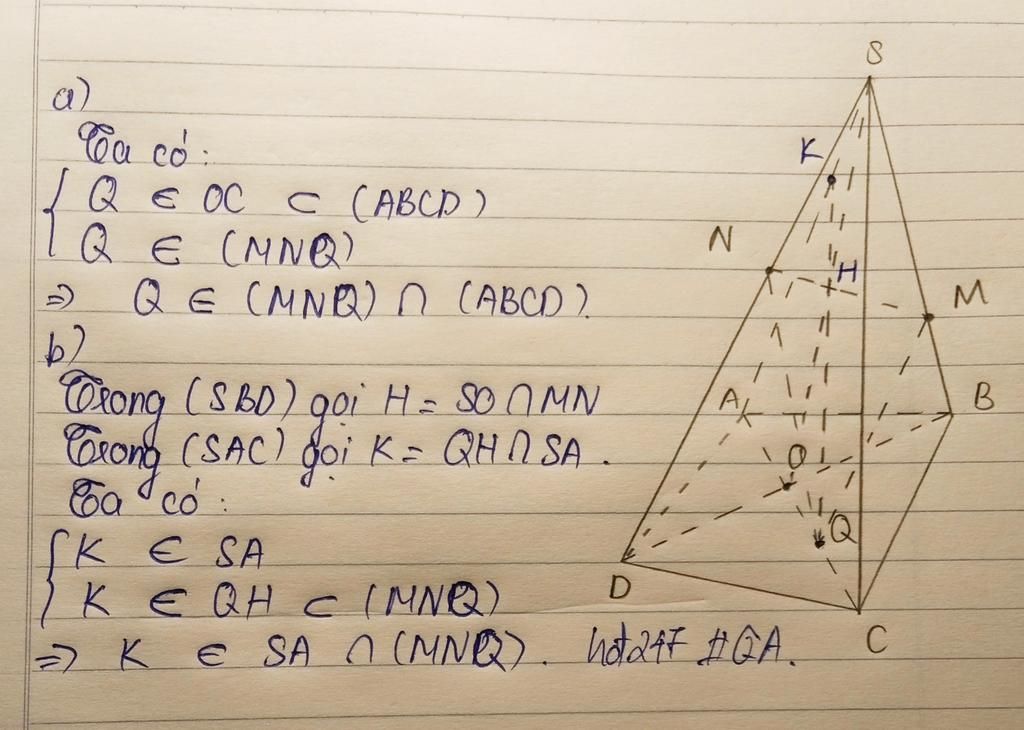 a)
Ta có:
{ Q ∈ OC ⊂ (ABCD)
Q ∈ (MNQ)
=> Q ∈ (MNQ) ∩ (ABCD).
b)
Trong (SBD) gọi H = SO ∩ MN
Trong (SAC) gọi K = QH ∩ SA.
Ta có:
{ K ∈ SA
K ∈ QH ⊂ (MNQ)
=> K ∈ SA ∩ (MNQ). hot247 #QA.
S
K
N
H
M
A
B
O
Q
D
C